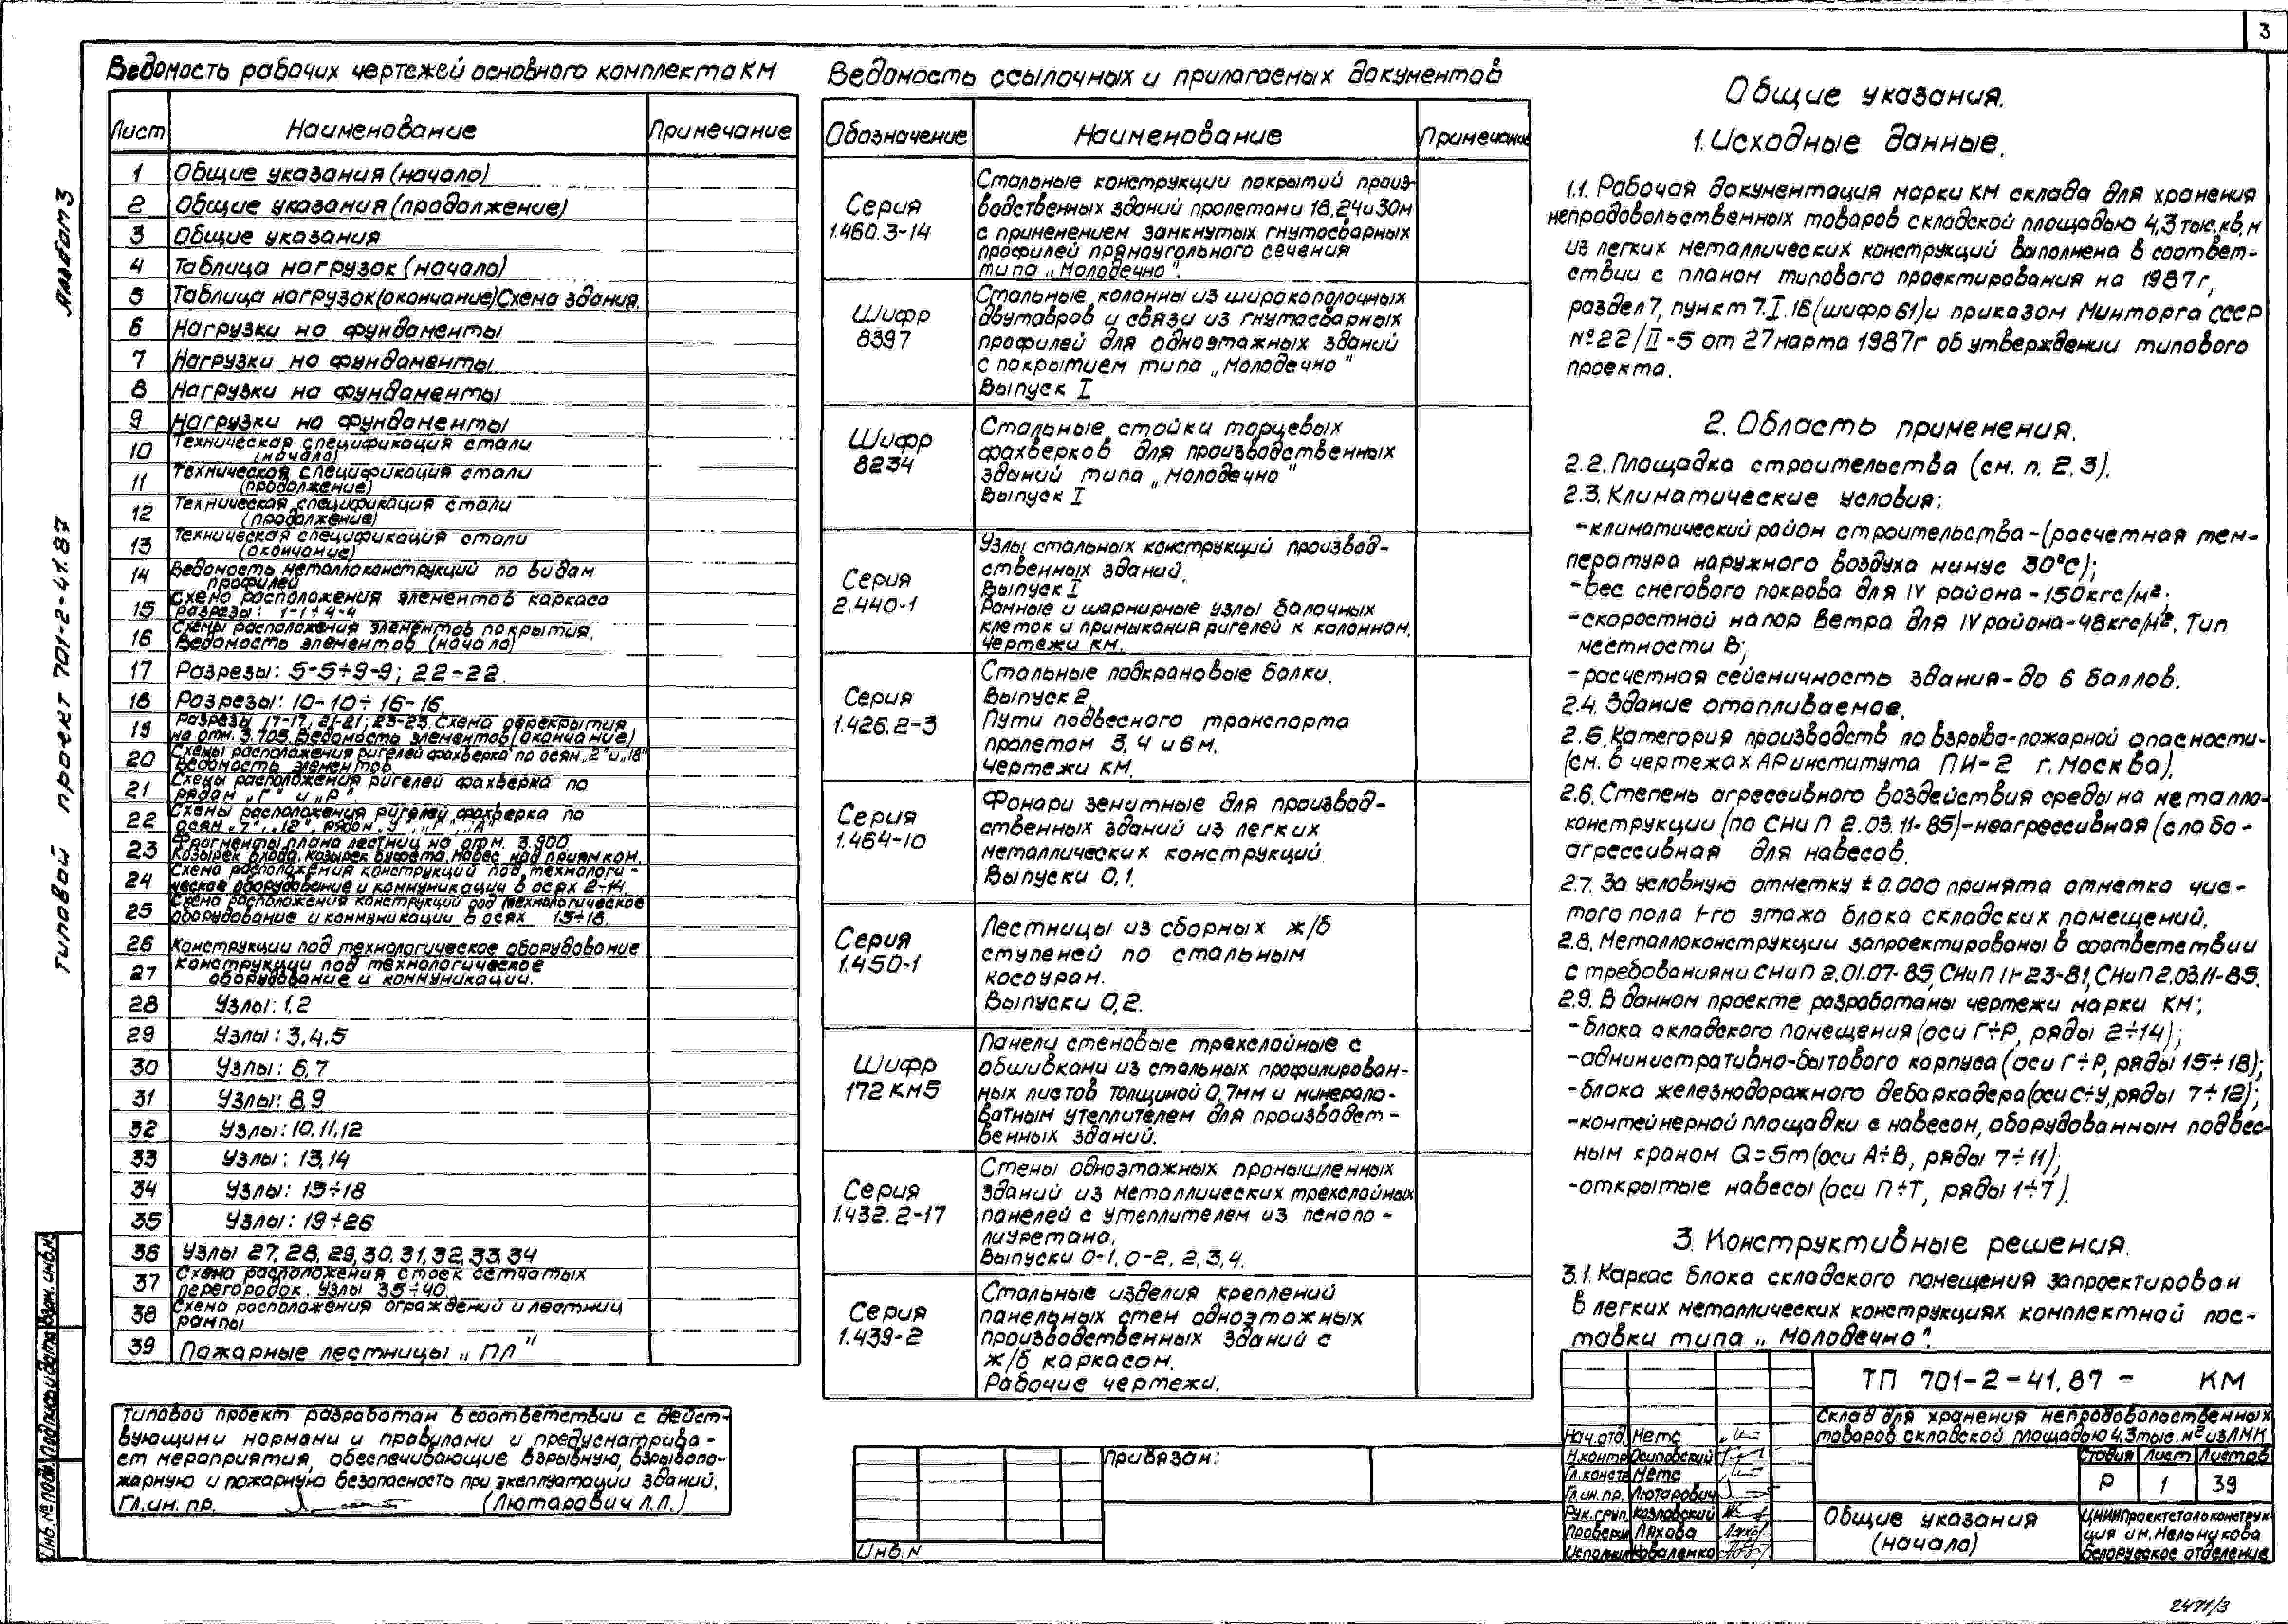 3
Альбом 3
типовой проект 701-2-41.87
Ведомость рабочих чертежей основного комплекта КМ
Лист Наименование Примечание
1 Общие указания (начало)
2 Общие указания (продолжение)
3 Общие указания
4 Таблица нагрузок (начало)
5 Таблица нагрузок (окончание) Схема здания.
6 Нагрузки на фундаменты
7 Нагрузки на фундаменты
8 Нагрузки на фундаменты
9 Нагрузки на фундаменты
10 Техническая спецификация стали
(начало)
11 Техническая спецификация стали
(продолжение)
12 Техническая спецификация стали
(продолжение)
13 Техническая спецификация стали
(окончание)
14 Ведомость металлоконструкций по видам
профилей
15 Схема расположения элементов каркаса
разрезы: 1-1÷4-4
16 Схемы расположения элементов покрытия.
Ведомость элементов (начало)
17 Разрезы: 5-5÷9-9; 22-22.
18 Разрезы: 10-10÷16-16.
19 Разрезы 17-17; 21-21; 23-23. Схема перекрытия
на отм. 3.705. Ведомость элементов (окончание)
20 Схемы расположения ригелей фахверка по осям „2" и „18"
Ведомость элементов.
21 Схемы расположения ригелей фахверка по
рядам „Г" и „Р".
22 Схемы расположения ригелей фахверка по
осям „7", „12", рядам „У", „Г", „А"
23 Фрагменты плана лестниц на отм. 3.900
Козырек входа. Козырек буфета. Навес над приямком.
24 Схема расположения конструкций под технологи-
ческое оборудование и коммуникации в осях 2÷14.
25 Схема расположения конструкций под технологическое
оборудование и коммуникации в осях 15÷18.
26 Конструкции под технологическое оборудование
27 Конструкции под технологическое
оборудование и коммуникации.
28 Узлы: 1, 2
29 Узлы: 3, 4, 5
30 Узлы: 6, 7
31 Узлы: 8, 9
32 Узлы: 10, 11, 12
33 Узлы: 13, 14
34 Узлы: 15÷18
35 Узлы: 19÷26
36 Узлы 27, 28, 29, 30, 31, 32, 33, 34
37 Схема расположения стоек сетчатых
перегородок. Узлы 35÷40.
38 Схема расположения ограждений и лестниц
рампы
39 Пожарные лестницы „ПЛ"
Типовой проект разработан в соответствии с дейст-
вующими нормами и правилами и предусматрива-
ет мероприятия, обеспечивающие взрывную, взрывопо-
жарную и пожарную безопасность при эксплуатации зданий.
Гл. ин. пр. (Лютарович Л.Л.)
Ведомость ссылочных и прилагаемых документов
Обозначение Наименование Примечание
Серия
1.460.3-14
Стальные конструкции покрытий произ-
водственных зданий пролетами 18, 24 и 30м
с применением замкнутых гнутосварных
профилей прямоугольного сечения
типа „Молодечно".
Шифр
8397
Стальные колонны из широкополочных
двутавров и связи из гнутосварных
профилей для одноэтажных зданий
с покрытием типа „Молодечно"
Выпуск I
Шифр
8234
Стальные стойки торцевых
фахверков для производственных
зданий типа „Молодечно"
Выпуск I
Серия
2.440-1
Узлы стальных конструкций производ-
ственных зданий.
Выпуск I
Рамные и шарнирные узлы балочных
клеток и примыкания ригелей к колоннам.
Чертежи КМ.
Серия
1.426.2-3
Стальные подкрановые балки.
Выпуск 2.
Пути подвесного транспорта
пролетом 3, 4 и 6м.
Чертежи КМ.
Серия
1.464-10
Фонари зенитные для производ-
ственных зданий из легких
металлических конструкций.
Выпуски 0,1.
Серия
1.450-1
Лестницы из сборных ж/б
ступеней по стальным
косоурам.
Выпуски 0,2.
Шифр
172 КМ5
Панели стеновые трехслойные с
обшивками из стальных профилирован-
ных листов толщиной 0,7мм и минерало-
ватным утеплителем для производст-
венных зданий.
Серия
1.432.2-17
Стены одноэтажных промышленных
зданий из металлических трехслойных
панелей с утеплителем из пенопо-
лиуретана.
Выпуски 0-1, 0-2, 2, 3, 4.
Серия
1.439-2
Стальные изделия креплений
панельных стен одноэтажных
производственных зданий с
ж/б каркасом.
Рабочие чертежи.
Общие указания.
1. Исходные данные.
1.1. Рабочая документация марки КМ склада для хранения
непродовольственных товаров складской площадью 4,3 тыс. кв. м
из легких металлических конструкций выполнена в соответ-
ствии с планом типового проектирования на 1987г,
раздел 7, пункт 7.I.16 (шифр 61) и приказом Минторга СССР
№22/II-5 от 27 марта 1987г об утверждении типового
проекта.
2. Область применения.
2.2. Площадка строительства (см. п. 2.3).
2.3. Климатические условия:
-климатический район строительства-(расчетная тем-
пература наружного воздуха минус 30°С);
-вес снегового покрова для IV района-150кгс/м²;
-скоростной напор ветра для IV района-48кгс/м². Тип
местности В;
-расчетная сейсмичность здания-до 6 баллов.
2.4. Здание отапливаемое.
2.5. Категория производств по взрыво-пожарной опасности-
(см. в чертежах АР института ПИ-2 г. Москва).
2.6. Степень агрессивного воздействия среды на металло-
конструкции (по СНиП 2.03.11-85)-неагрессивная (слабо-
агрессивная для навесов.
2.7. За условную отметку ±0.000 принята отметка чис-
того пола 1-го этажа блока складских помещений.
2.8. Металлоконструкции запроектированы в соответствии
с требованиями СНиП 2.01.07-85, СНиП II-23-81, СНиП 2.03.11-85.
2.9. В данном проекте разработаны чертежи марки КМ:
-блока складского помещения (оси Г÷Р, ряды 2÷14);
-административно-бытового корпуса (оси Г÷Р, ряды 15÷18);
-блока железнодорожного дебаркадера (оси С÷У, ряды 7÷12);
-контейнерной площадки с навесом, оборудованным подвес-
ным краном Q=5т (оси А÷В, ряды 7÷11);
-открытые навесы (оси П÷Т, ряды 1÷7).
3. Конструктивные решения.
3.1. Каркас блока складского помещения запроектирован
в легких металлических конструкциях комплектной пос-
тавки типа „Молодечно".
Привязан:
Инв. N
Нач. отд. Метс
Н. контр. Осиповский
Гл. констр. Метс
Гл. ин. пр. Лютарович
Рук. груп. Козловский
Проверил Ляхова
Исполнил Коваленко
ТП 701-2-41.87 - КМ
Склад для хранения непродовольственных
товаров складской площадью 4,3 тыс. м² из ЛМК
Стадия Лист Листов
Р 1 39
Общие указания
(начало)
ЦНИИПроектстальконструк
ция им. Мельникова
Белорусское отделение
Инв. № подл. Подпись и дата Взам. инв. №
2471/3